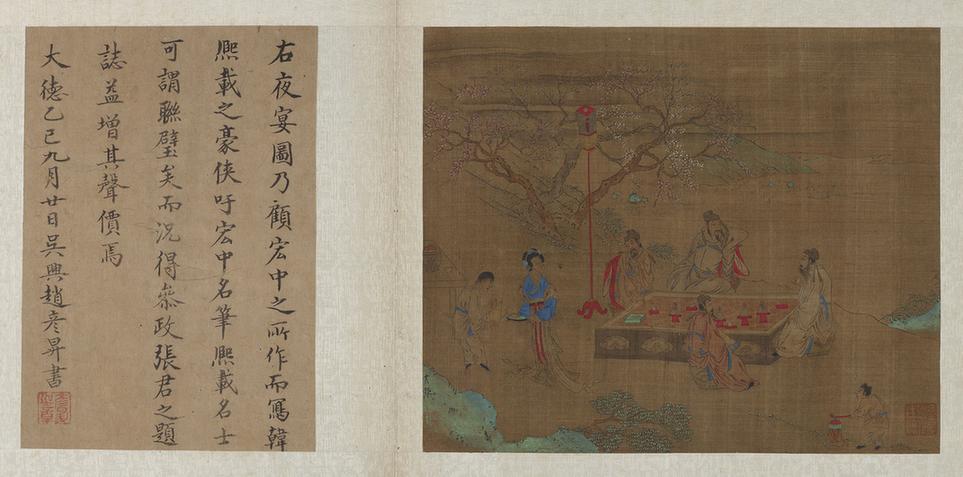 右夜宴圖乃顧宏中之所作而寫韓
熙載之豪俠吁宏中名筆熙載名士
可謂聯璧矣而況得叅政張君之題
誌益增其聲價焉
大德乙巳九月廿日吳興趙彥昇書